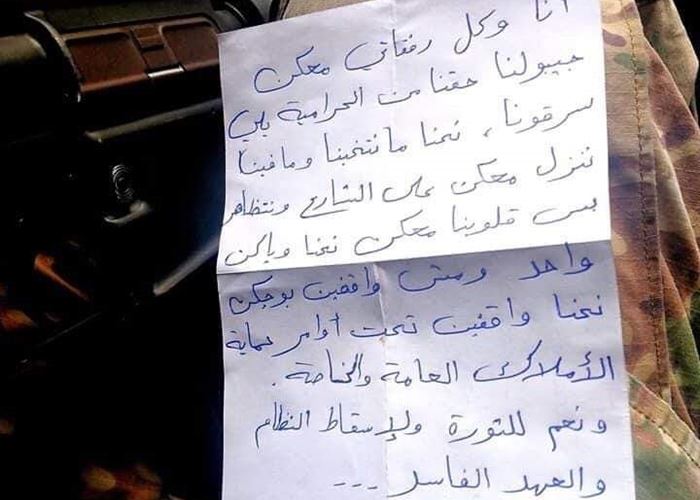 انا وكل رفقاتي معكن
جيبولنا حقنا من الحرامية يلي
سرقونا ، نحنا ما نتخبنا وما فينا
ننزل معكن على الشارع ونتظاهر
بس قلوبنا معكن نحنا وياكن
واحد ومش واقفين بوجكن
نحنا واقفين تحت أوامر حماية
الأملاك العامة والخاصة .
ونعم للثورة ولإسقاط النظام
والعهد الفاسد ---